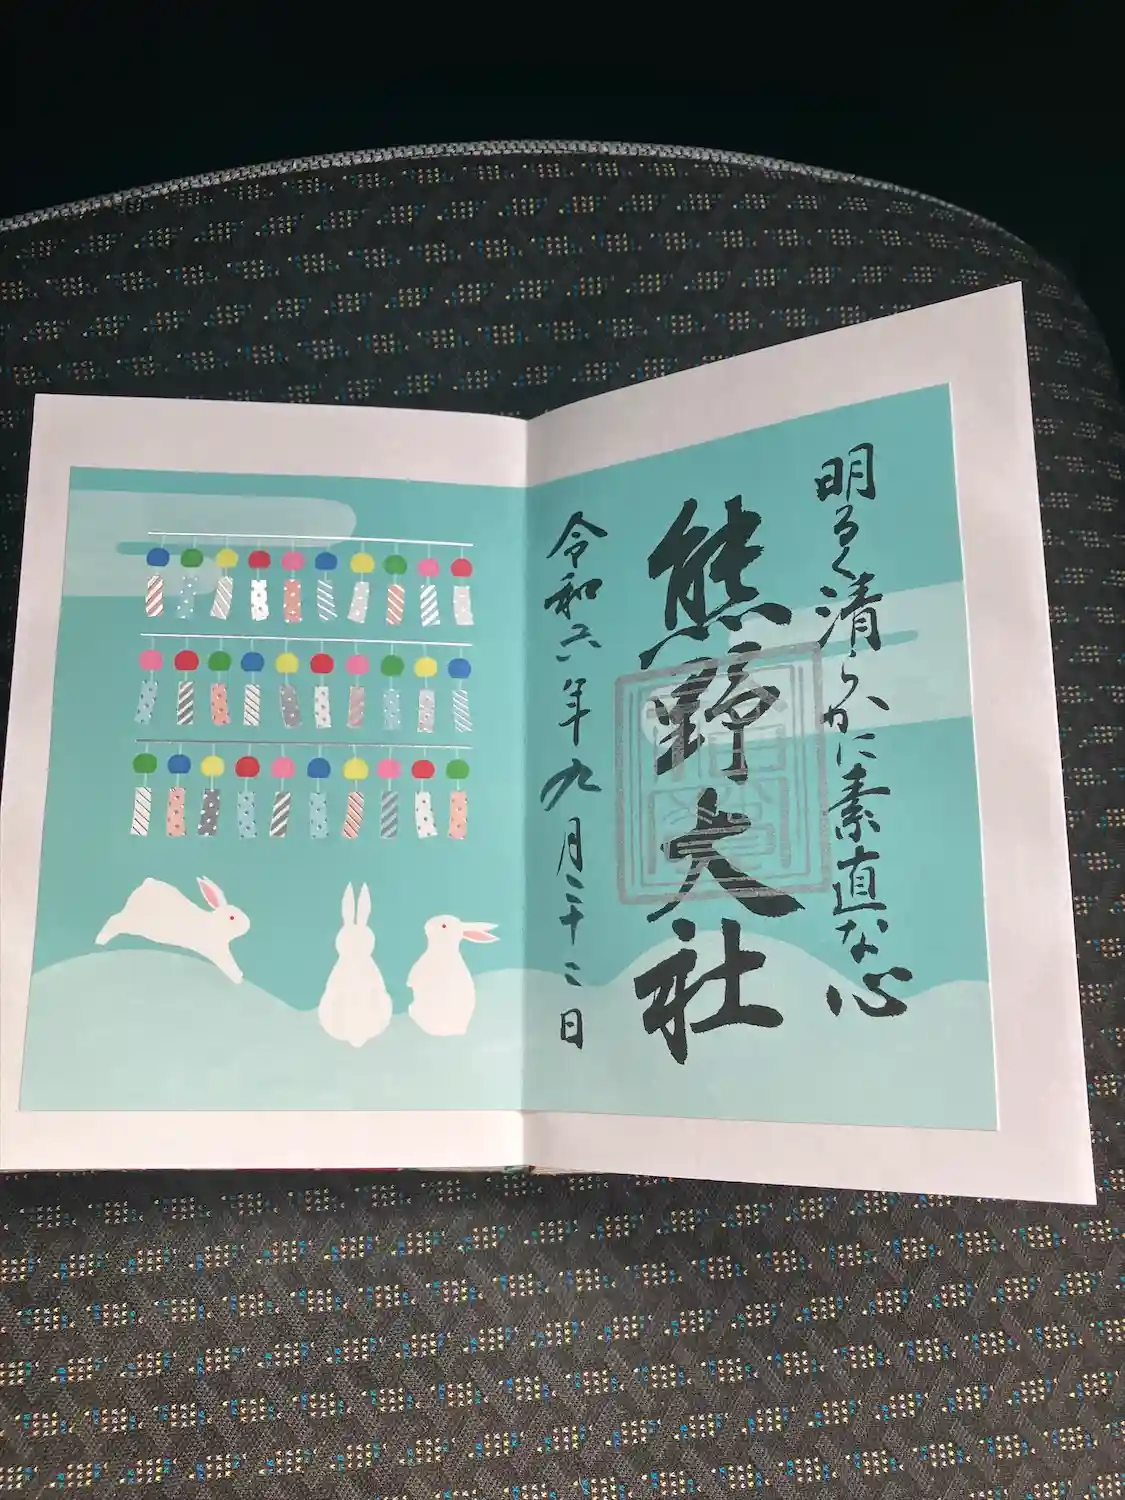 明るく清らかに素直な心
熊野大社
令和六年九月二十二日